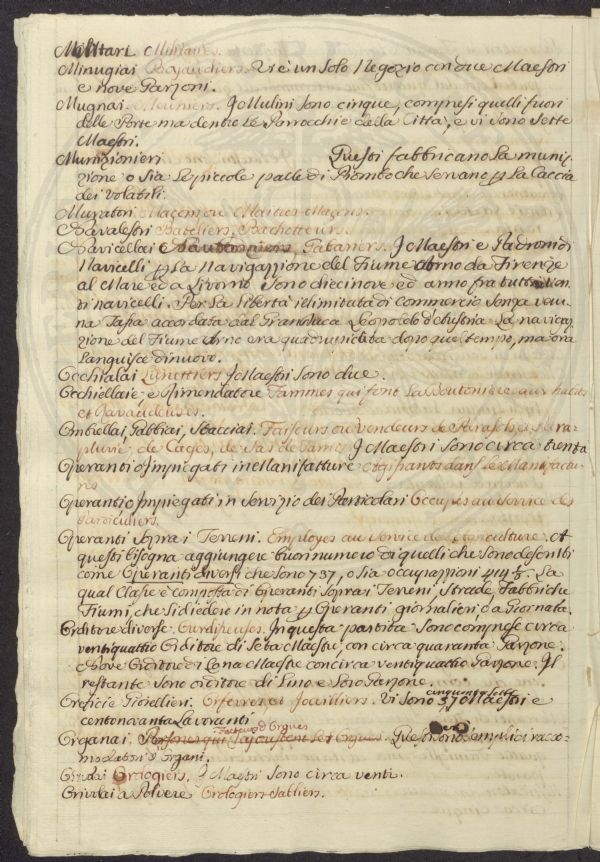 Militari Militaires.
Minugiai Boyaudiers. Vi è un solo Negozio con due Maestri
e nove Garzoni.
Mugnai. Meuniers. I Mulini sono cinque, compresi quelli fuori
delle Porte ma dentro le Parrocchie della Città, e vi sono sette
Maestri.
Munizionieri Questi fabbricano la muni-
zione o sia le piccole palle di Piombo che servano p la Caccia
dei Volatili.
Muratori Maçons ou Maitres-Maçons.
Navalestri Bateliers, Bachotteurs.
Navicellai Gabariers. I Maestri e Padroni di
Navicelli p la Navigazzione del Fiume Arno da Firenze
al Mare ed a Livorno sono diecinove ed anno fra tutti
di navicelli. Per la libertà illimitata di commercio senza veru-
na Tassa accordata dal Granduca Leopoldo d'Austria la naviga-
zione del Fiume Arno era quadruplicata dopo quel tempo, ma ora
languisce di nuovo.
Occhialai Lunettiers I Maestri sono due.
Occhiellaie e Rimendatore Fammes qui font la Boutonière aux habits
et Ravaudeuses.
Ombrellai, Gabbiai, Stacciai. Faiseurs ou Vendeurs de Parasols, et Para-
pluvie, de Cages, de Sas de Tamis I Maestri sono circa trenta
Operanti o Impiegati in Manifatture dans les Manifactu-
res
Operanti o Impiegati in servizio dei Particolari Occupés au Service des
Particuliers.
Operanti sopra i Terreni. Employes au Service de l'Agriculture. A
questi bisogna aggiungere buon numero di quelli che sono descritti
come Operanti diversi che sono 737, o sia occupazzioni La
qual Classe è composta di Operanti sopra i Terreni, Strade, Fabbriche
Fiumi, che si diedero in nota p Operanti giornalieri, o a Giornata.
Orditore diverse Ourdisseuses. In questa partita sono comprese circa
ventiquattro Orditore di Seta Maestre, con circa quaranta Garzone.
Nove Orditore di Lana Maestre con circa ventiquattro Garzone. Il
restante sono orditore di Lino e loro Garzone.
Orefici e Gioiellieri. Orfevres et Joailliers. Vi sono cinquantasette 57 Maestri e
centonovanta Lavoranti
Organai. Facteurs d'Orgues Personnes qui rajoustent les Orgues. Questi sono semplici racco-
modatori d'organi.
Oriolai Orologiers. I Maestri sono circa venti.
Oriolai a Polvere Orologiers-Sabliers.